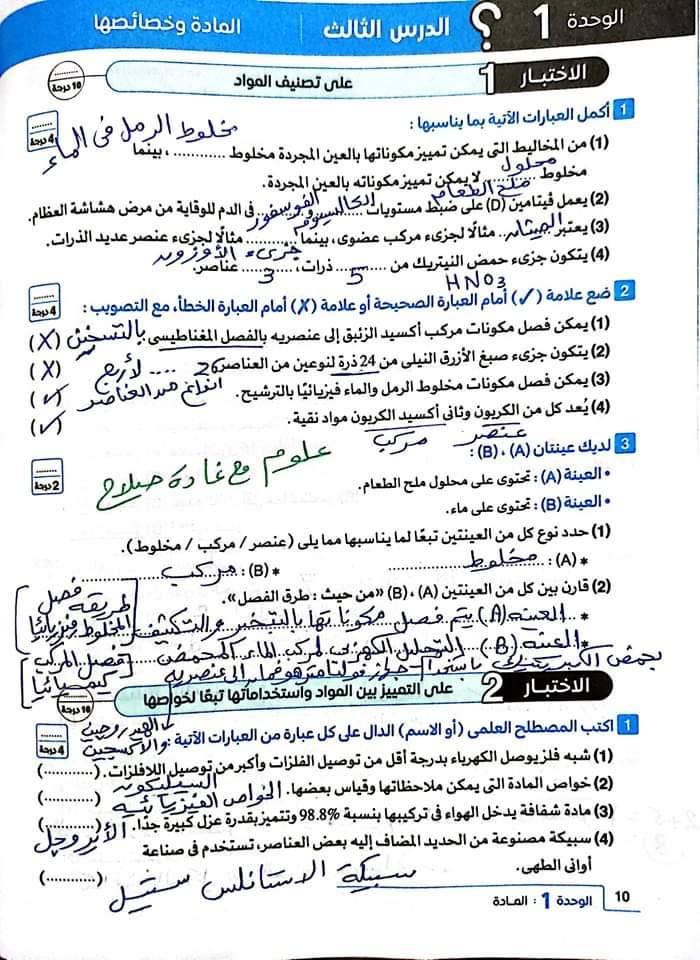 الوحدة 1 ؟ الدرس الثالث المادة وخصائصها
الاختبار 1 على تصنيف المواد
10 درجة
1 أكمل العبارات الآتية بما يناسبها :
4 درجة
مخلوط الرمل فى الماء
(1) من المخاليط التى يمكن تمييز مكوناتها بالعين المجردة مخلوط ............ ، بينما
مخلوط محلول ملح الطعام لا يمكن تمييز مكوناته بالعين المجردة.
(2) يعمل ڤيتامين (D) على ضبط مستويات الكالسيوم و الفوسفور فى الدم للوقاية من مرض هشاشة العظام.
(3) يعتبر الميثان مثالًا لجزىء مركب عضوى، بينما جزىء الأوزون مثالًا لجزىء عنصر عديد الذرات.
(4) يتكون جزىء حمض النيتريك من 5 ذرات، 3 عناصر.
HNO3
2 ضع علامة (✓) أمام العبارة الصحيحة أو علامة (✗) أمام العبارة الخطأ، مع التصويب :
4 درجة
(1) يمكن فصل مكونات مركب أكسيد الزئبق إلى عنصريه بالفصل المغناطيسى بالتسخين (X)
(2) يتكون جزىء صبغ الأزرق النيلى من 24 ذرة لنوعين من العناصر 26 .... لأربع (X)
أنواع من العناصر
(3) يمكن فصل مكونات مخلوط الرمل والماء فيزيائيًا بالترشيح. (✓)
(4) يُعد كل من الكربون وثانى أكسيد الكربون مواد نقية. (✓)
عنصر مركب
3 لديك عينتان (A) ، (B) :
2 درجة
علوم مع غادة صلاح
• العينة (A) : تحتوى على محلول ملح الطعام.
• العينة (B) : تحتوى على ماء.
(1) حدد نوع كل من العينتين تبعًا لما يناسبها مما يلى (عنصر / مركب / مخلوط).
* (A) : مخلوط * (B) : مركب
(2) قارن بين كل من العينتين (A) ، (B) «من حيث : طرق الفصل».
طريقة فصل المخلوط فيزيائيا
* العينة (A) يتم فصل مكوناتها بالتبخير والتكثيف
* العينة (B) التحليل الكهربى لمركب الماء المحمض
فصل المركب كيميائيا
بحمض الكبريتيك باستخدام جهاز فولتامتر هوفمان إلى عنصريه
الهيدروجين والأكسجين
الاختبار 2 على التمييز بين المواد واستخداماتها تبعًا لخواصها
10 درجة
1 اكتب المصطلح العلمى (أو الاسم) الدال على كل عبارة من العبارات الآتية :
4 درجة
(1) شبه فلز يوصل الكهرباء بدرجة أقل من توصيل الفلزات وأكبر من توصيل اللافلزات. (............)
السيليكون
(2) خواص المادة التى يمكن ملاحظاتها وقياس بعضها. الخواص الفيزيائية (............)
(3) مادة شفافة يدخل الهواء فى تركيبها بنسبة 98.8% وتتميز بقدرة عزل كبيرة جدًا. (............)
الأيروجل
(4) سبيكة مصنوعة من الحديد المضاف إليه بعض العناصر، تستخدم فى صناعة
أوانى الطهى. (............)
سبيكة الاستانلس ستيل
10 الوحدة 1 : المادة